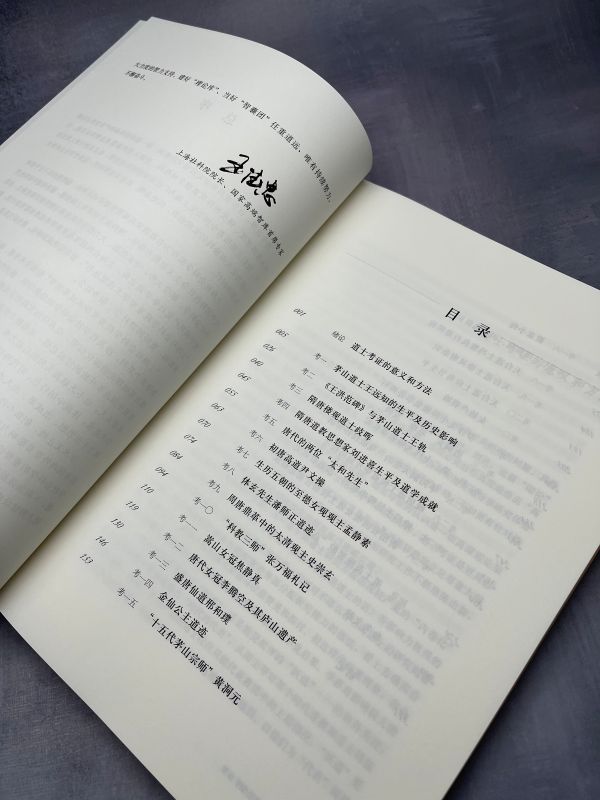 大力度的智力支持。建好“理论库”、当好“智囊团”任重道远，唯有持续努力、
不懈奋斗。
王德忠
上海社科院院长、国家高端智库首席专家
目 录
001 绪论 道士考证的意义和方法
005 考一 茅山道士王远知的生平及历史影响
026 考二 《王洪范碑》与茅山道士王轨
040 考三 隋唐楼观道士歧晖
045 考四 隋唐道教思想家刘进喜生平及道学成就
055 考五 唐代的两位“太和先生”
063 考六 初唐高道尹文操
070 考七 生历五朝的至德女观观主孟静素
074 考八 体玄先生潘师正道迹
081 考九 周唐鼎革中的太清观主史崇玄
094 考一〇 “科教三师”张万福札记
110 考一一 嵩山女冠焦静真
119 考一二 唐代女冠李腾空及其庐山遗产
130 考一三 盛唐仙道邢和璞
146 考一四 金仙公主道迹
153 考一五 “十五代茅山宗师”黄洞元